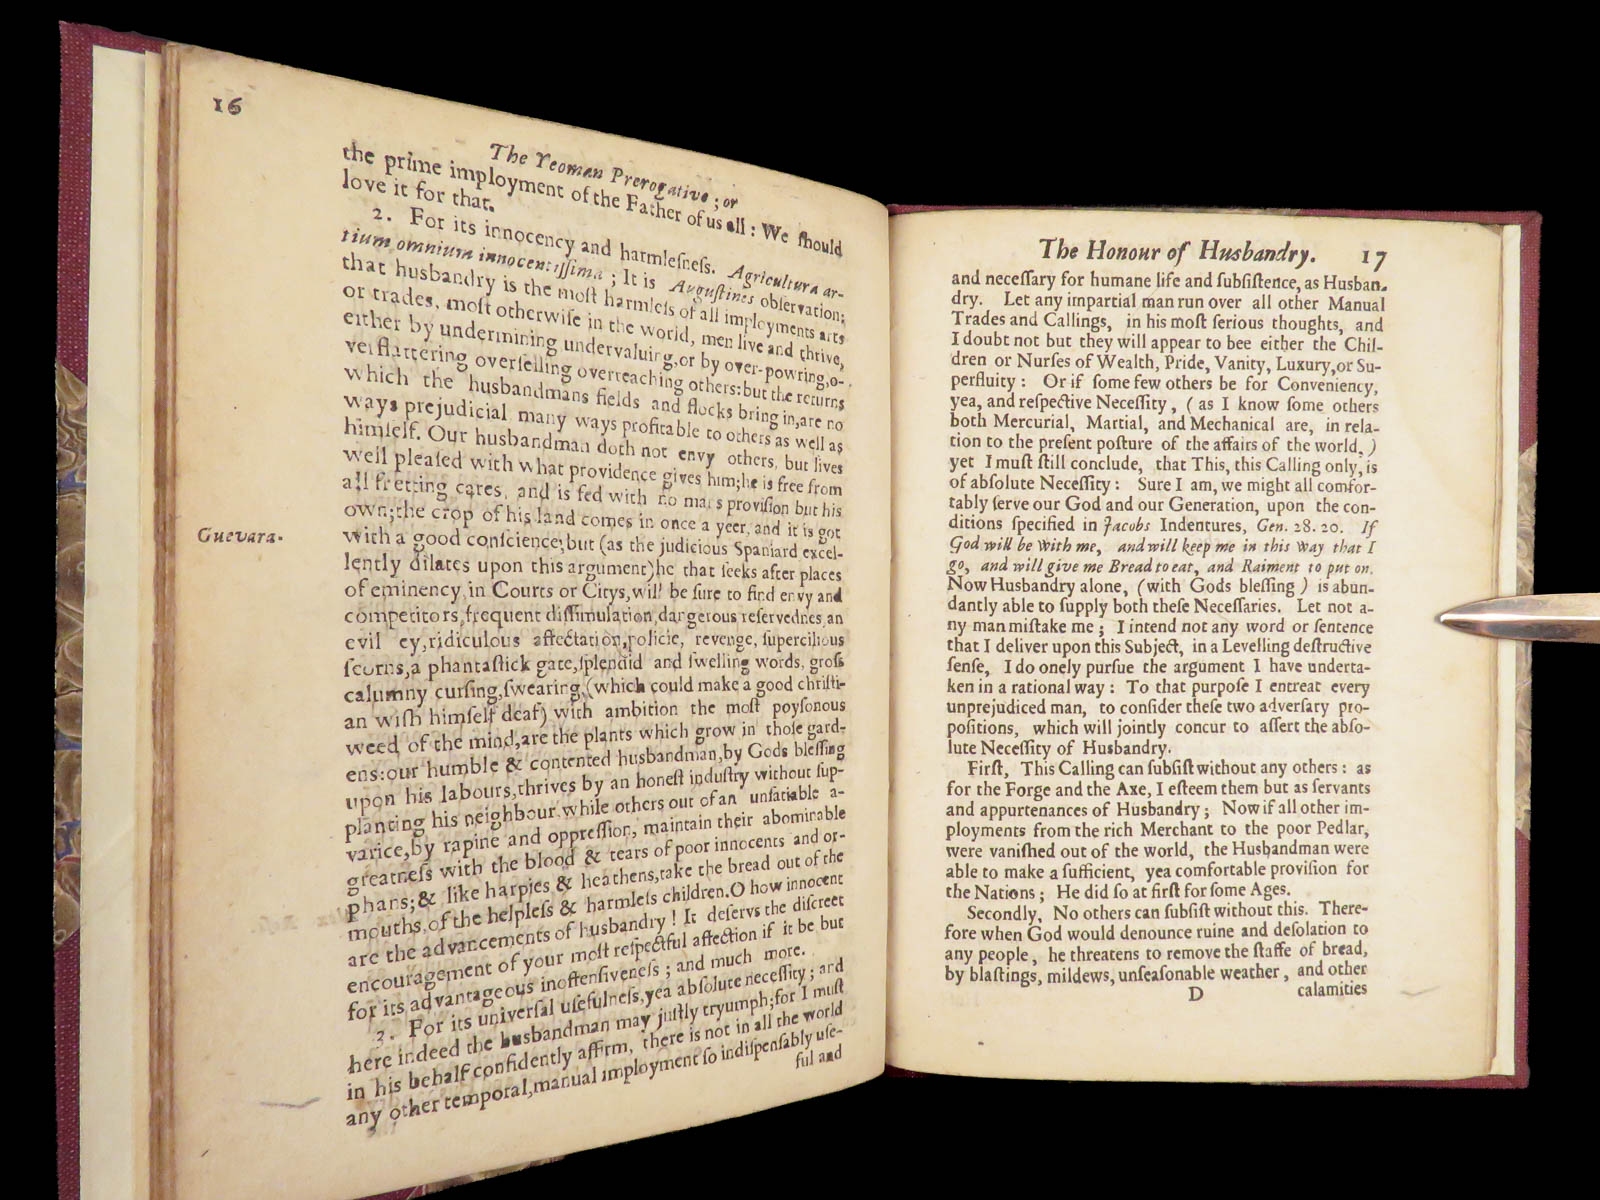 16
The Yeoman Prerogative; or
the prime imployment of the Father of us all: We ſhould
love it for that.
2. For its innocency and harmleſneſs. Agricultura ar-
tium omnium innocentiſſima; It is Auguſtines obſervation;
that husbandry is the moſt harmleſs of all imployments arts
or trades, moſt otherwiſe in the world, men live and thrive,
either by undermining undervaluing, or by over-powring, o-
verflattering overſelling overreaching others: but the returns
which the husbandmans fields and flocks bring in, are no
ways prejudicial many ways profitable to others as well as
himſelf. Our husbandman doth not envy others, but lives
well pleaſed with what providence gives him; he is free from
all fretting cares, and is fed with no mans proviſion but his
own; the crop of his land comes in once a yeer, and it is got
Guevara.
with a good conſcience; but (as the judicious Spaniard excel-
lently dilates upon this argument) he that ſeeks after places
of eminency, in Courts or Citys, will be ſure to find envy and
competitors, frequent diſſimulation, dangerous reſervednes, an
evil ey, ridiculous affectation, policie, revenge, ſupercilious
ſcorns, a phantaſtick gate, ſplendid and ſwelling words, groſs
calumny curſing, ſwearing, (which could make a good chriſti-
an wiſh himſelf deaf) with ambition the moſt poyſonous
weed of the mind, are the plants which grow in thoſe gard-
ens: our humble & contented husbandman, by Gods bleſſing
upon his labours, thrives by an honeſt induſtry without ſup-
planting his neighbour. while others out of an unſatiable a-
varice, by rapine and oppreſſion, maintain their abominable
greatneſs with the blood & tears of poor innocents and or-
phans; & like harpies & heathens, take the bread out of the
mouths, of the helpleſs & harmleſs children. O how innocent
are the advancements of husbandry! It deſervs the diſcreet
encouragement of your moſt reſpectful affection if it be but
for its advantageous inoffenſiveneſs; and much more.
3. For its univerſal uſefulneſs, yea abſolute neceſſity; and
here indeed the husbandman may juſtly tryumph; for I muſt
in his behalf confidently affirm, there is not in all the world
any other temporal, manual imployment ſo indiſpenſably uſe-
ful and
The Honour of Husbandry. 17
and neceſſary for humane life and ſubſiſtence, as Husban-
dry. Let any impartial man run over all other Manual
Trades and Callings, in his moſt ſerious thoughts, and
I doubt not but they will appear to bee either the Chil-
dren or Nurſes of Wealth, Pride, Vanity, Luxury, or Su-
perfluity: Or if ſome few others be for Conveniency,
yea, and reſpective Neceſſity, (as I know ſome others
both Mercurial, Martial, and Mechanical are, in rela-
tion to the preſent poſture of the affairs of the world,)
yet I muſt ſtill conclude, that This, this Calling only, is
of abſolute Neceſſity: Sure I am, we might all comfor-
tably ſerve our God and our Generation, upon the con-
ditions ſpecified in Jacobs Indentures, Gen. 28. 20. If
God will be with me, and will keep me in this way that I
go, and will give me Bread to eat, and Raiment to put on.
Now Husbandry alone, (with Gods bleſſing) is abun-
dantly able to ſupply both theſe Neceſſaries. Let not a-
ny man miſtake me; I intend not any word or ſentence
that I deliver upon this Subject, in a Levelling deſtructive
ſenſe, I do onely purſue the argument I have underta-
ken in a rational way: To that purpoſe I entreat every
unprejudiced man, to conſider theſe two adverſary pro-
poſitions, which will jointly concur to aſſert the abſo-
lute Neceſſity of Husbandry.
Firſt, This Calling can ſubſiſt without any others: as
for the Forge and the Axe, I eſteem them but as ſervants
and appurtenances of Husbandry; Now if all other im-
ployments from the rich Merchant to the poor Pedlar,
were vaniſhed out of the world, the Husbandman were
able to make a ſufficient, yea comfortable proviſion for
the Nations; He did ſo at firſt for ſome Ages.
Secondly, No others can ſubſiſt without this. There-
fore when God would denounce ruine and deſolation to
any people, he threatens to remove the ſtaffe of bread,
by blaſtings, mildews, unſeaſonable weather, and other
D calamities